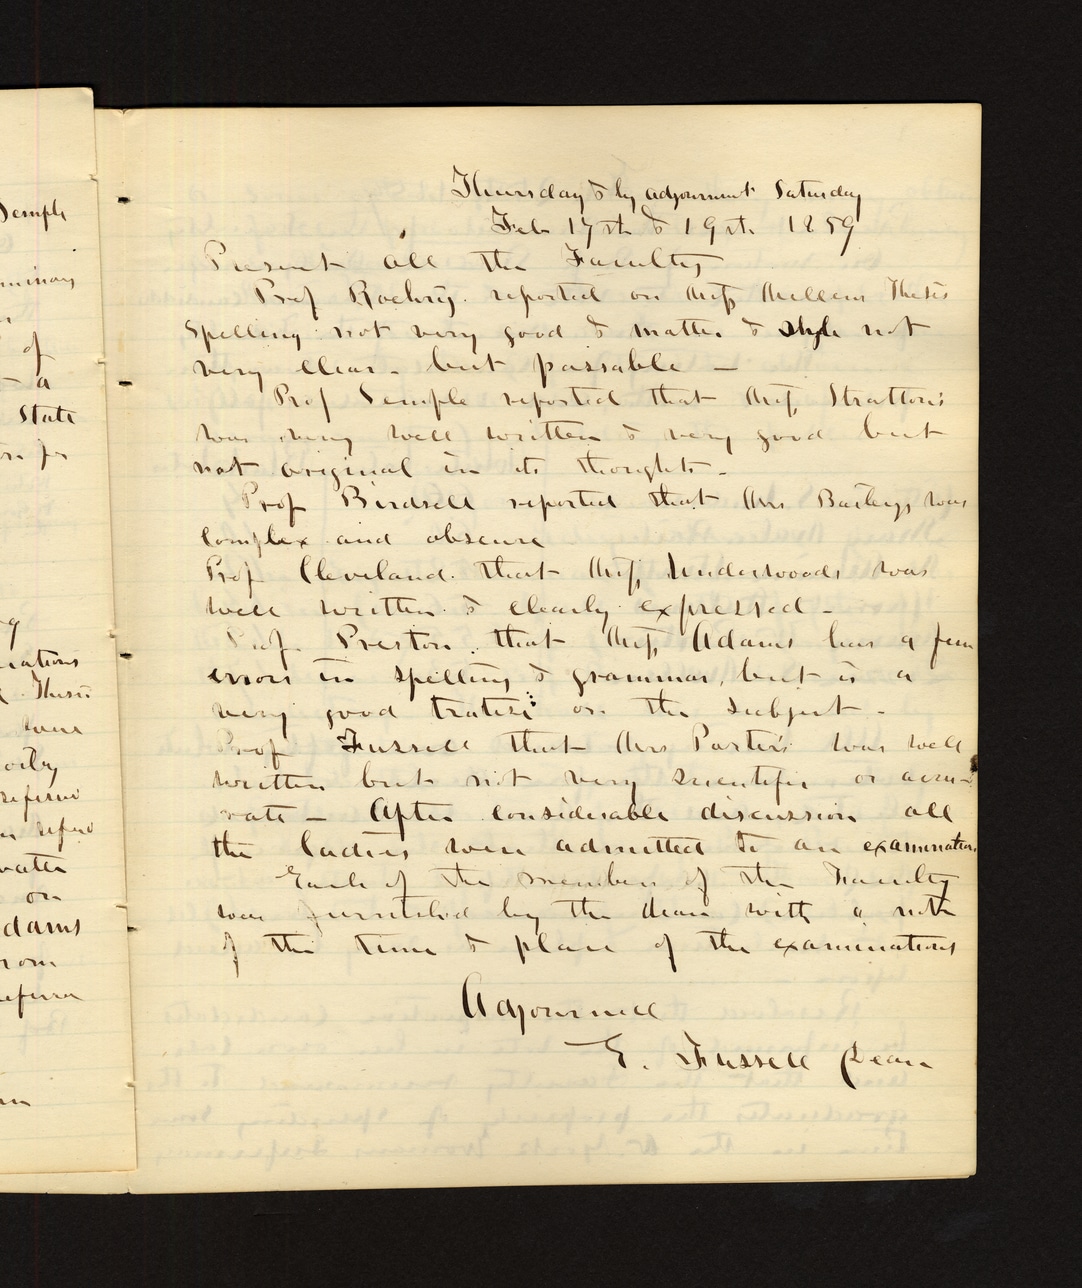 Thursday & by adjournment Saturday
Feb 17th & 19th 1859
Present all the Faculty
Prof Roehrig reported on Miss Thesis
Spelling not very good & matter & style not
very clear - but passable -
Prof Semple reported that Miss Stratton's
was very well written & very good but
not original in its thoughts -
Prof Birdsell reported that Mrs Baileys was
complex and obscure
Prof Cleveland that Miss Underwoods was
well written & clearly expressed -
Prof Preston that Miss Adams has a few
errors in spelling & grammar, but is a
very good tratise on the subject -
Prof Fussell that Mrs Porter's was well
written but not very scientific or accu-
rate - After considerable discussion all
the ladies were admitted to an examination
Each of the members of the Faculty
was furnished by the dean with a note
of the time & place of the examinations
Adjourned
E. Fussell Dean
Semple
of
a
State
Thesis
were
on